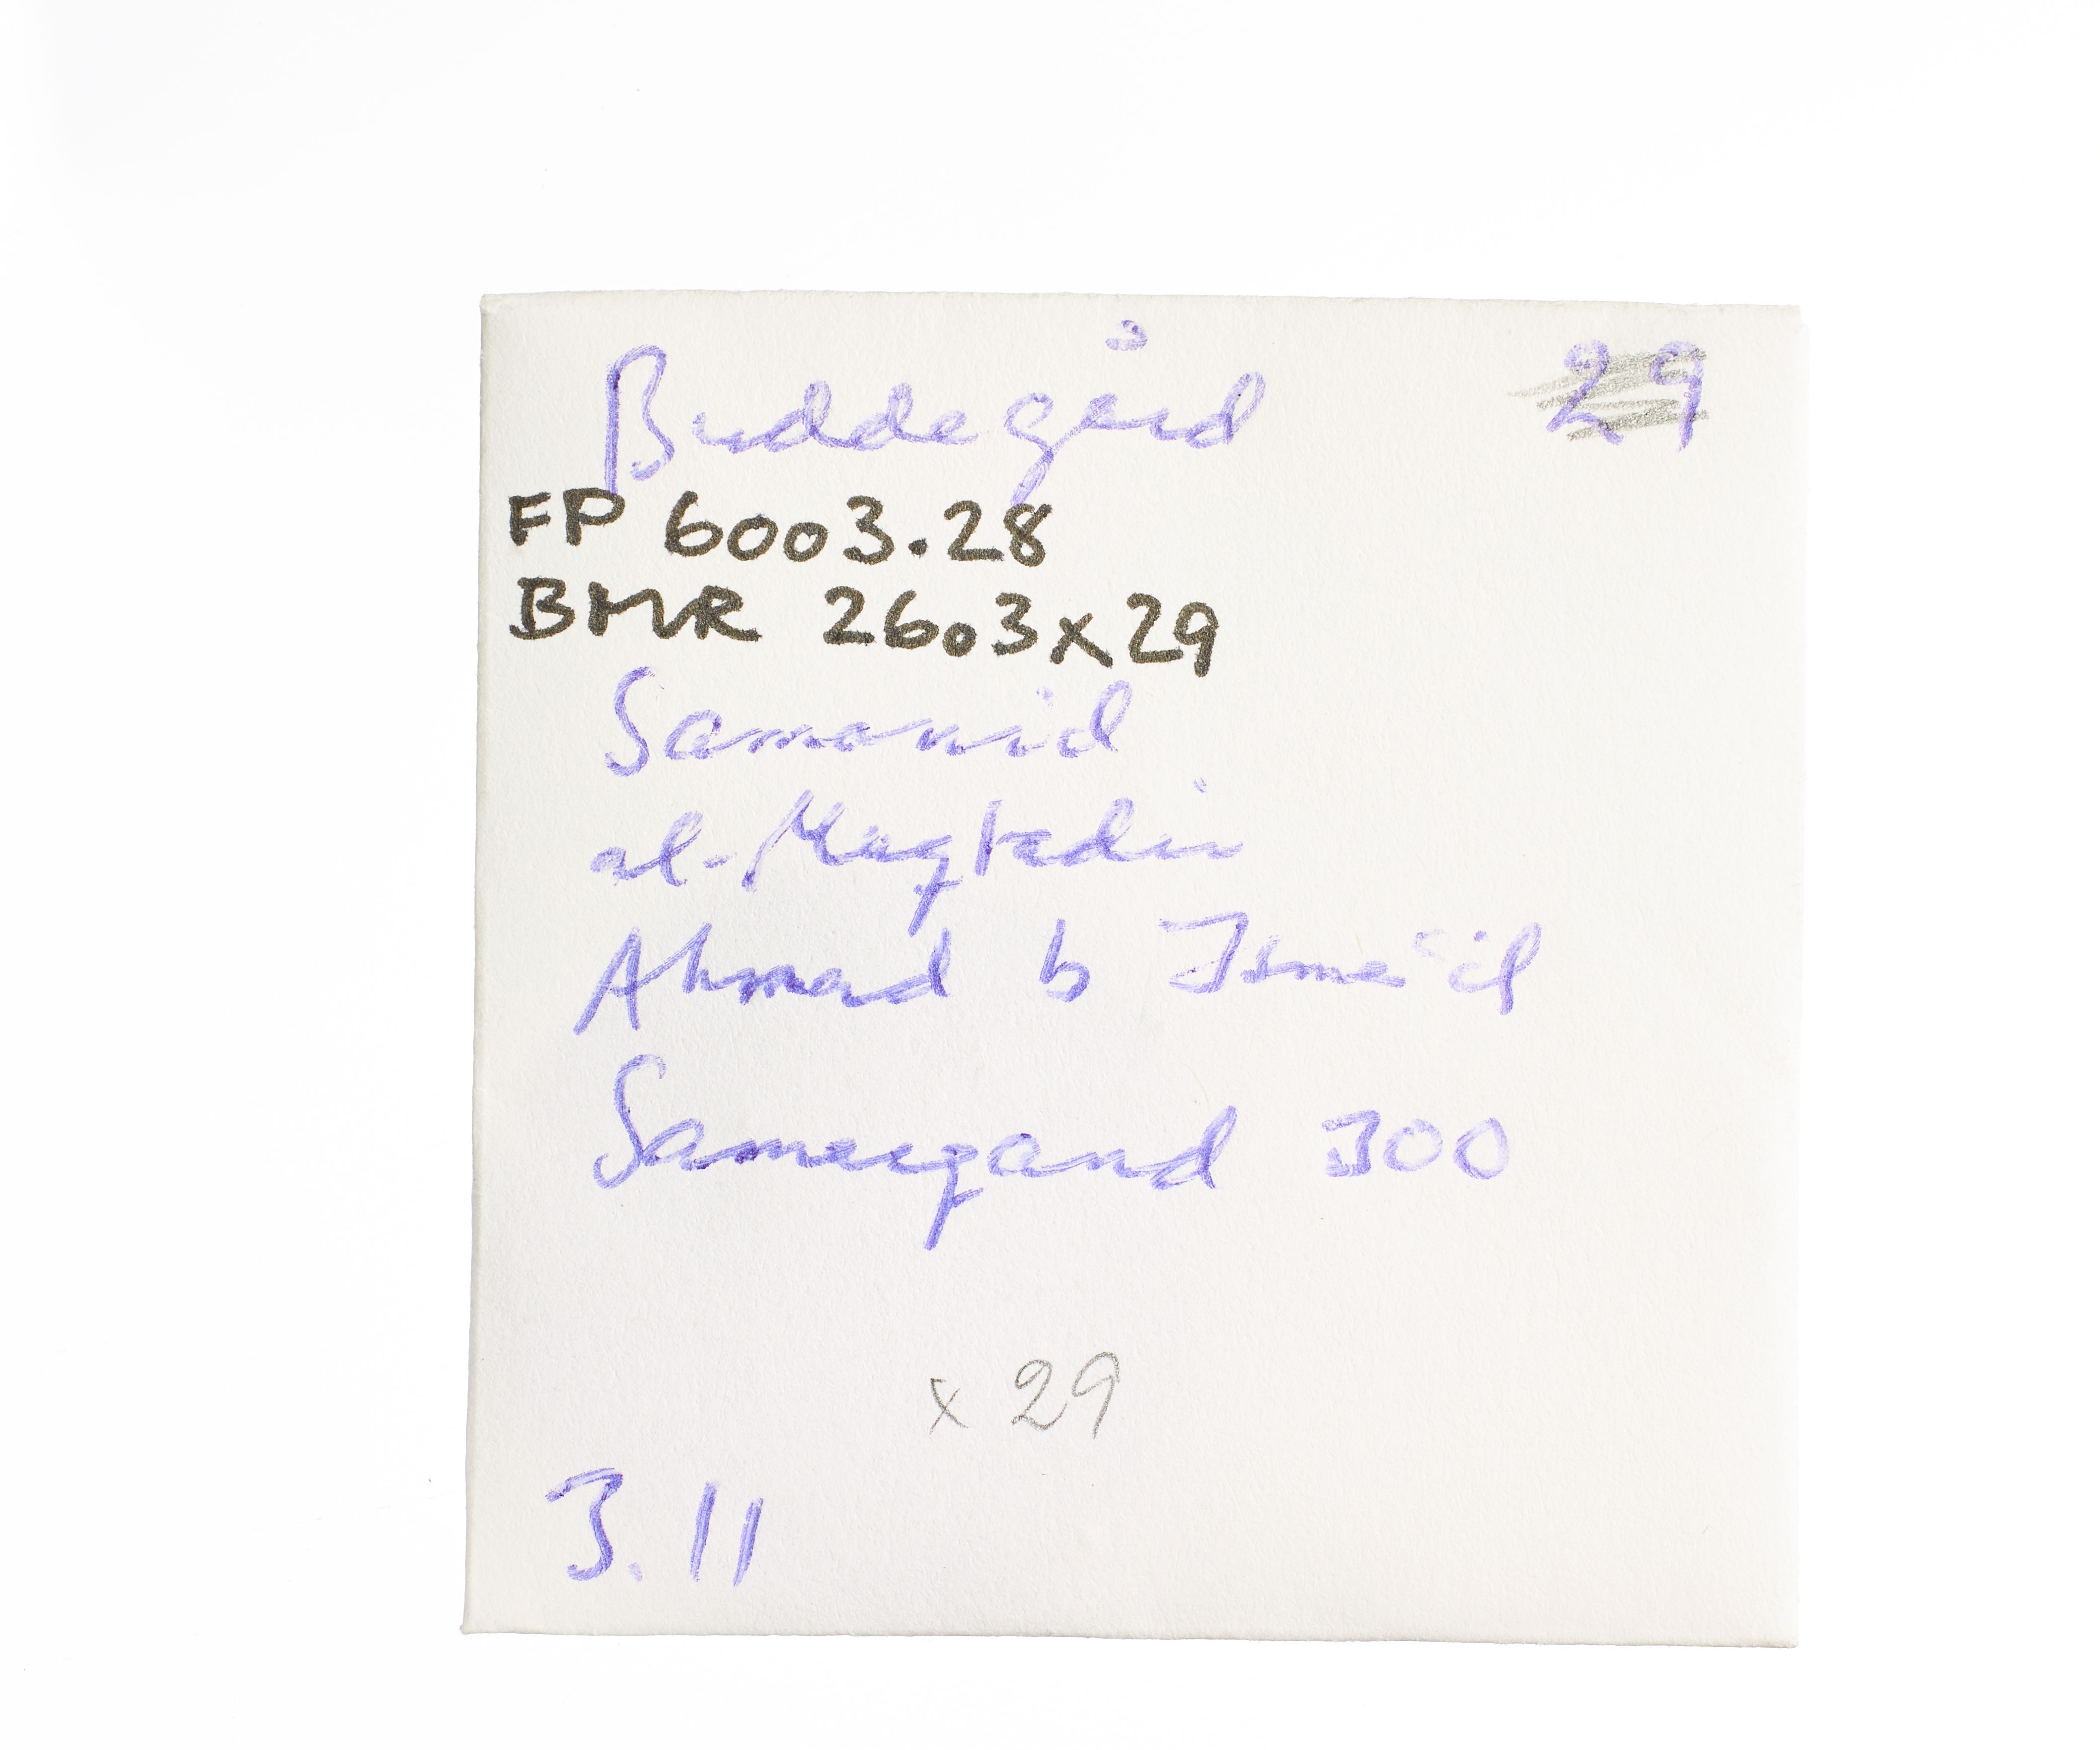 Buddegård 29
FP 6003.28
BMR 2603x29
Samanid
al-Muqtadir
Ahmad b Isma'il
Samarqand 300
x 29
3.11